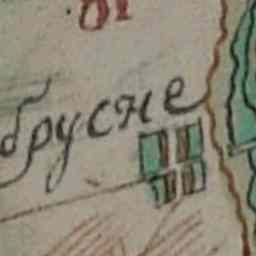 брусне